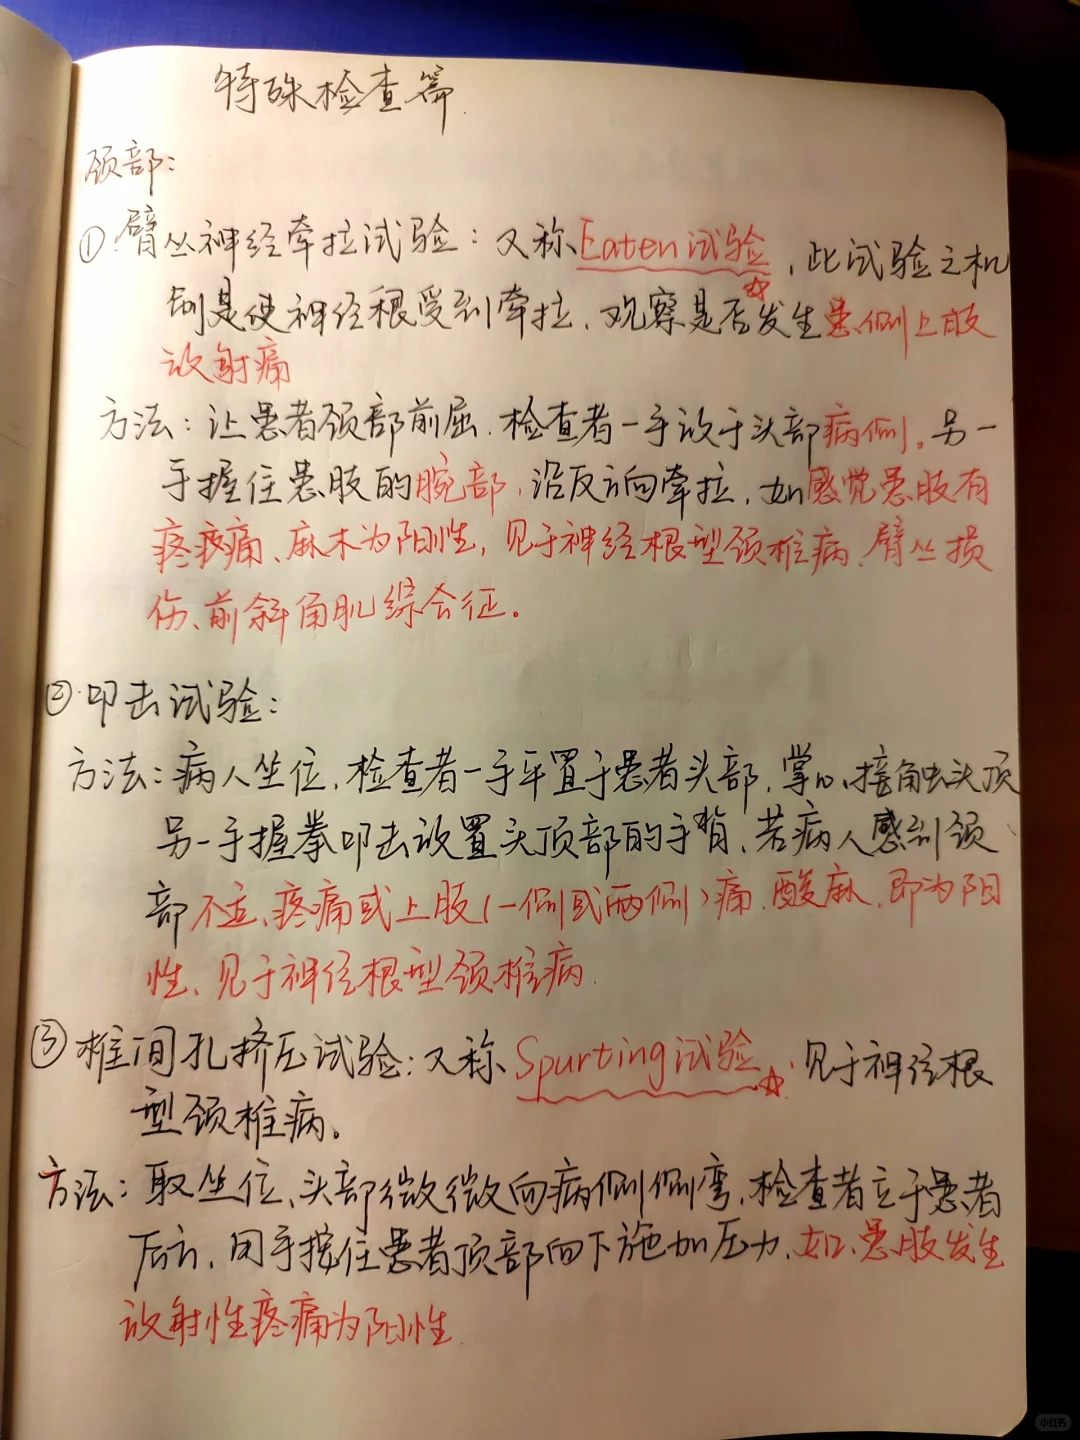 特殊检查篇.
颈部:
① 臂丛神经牵拉试验: 又称Eaten试验, 此试验之机
制是使神经根受到牵拉、观察是否发生患侧上肢
放射痛
方法: 让患者颈部前屈. 检查者一手放于头部病侧, 另一
手握住患肢的腕部, 沿反方向牵拉, 如感觉患肢有
疼痛、麻木为阳性, 见于神经根型颈椎病、臂丛损
伤、前斜角肌综合征。
② 叩击试验:
方法: 病人坐位, 检查者一手平置于患者头部, 掌心接触头顶
另一手握拳叩击放置头顶部的手背, 若病人感到颈
部不适、疼痛或上肢(一侧或两侧)痛、酸麻, 即为阳
性、见于神经根型颈椎病.
③ 椎间孔挤压试验: 又称Spurting试验 见于神经根
型颈椎病。
方法: 取坐位、头部微微向病侧侧弯, 检查者立于患者
后方, 用手按住患者顶部向下施加压力, 如患肢发生
放射性疼痛为阳性.
小红书